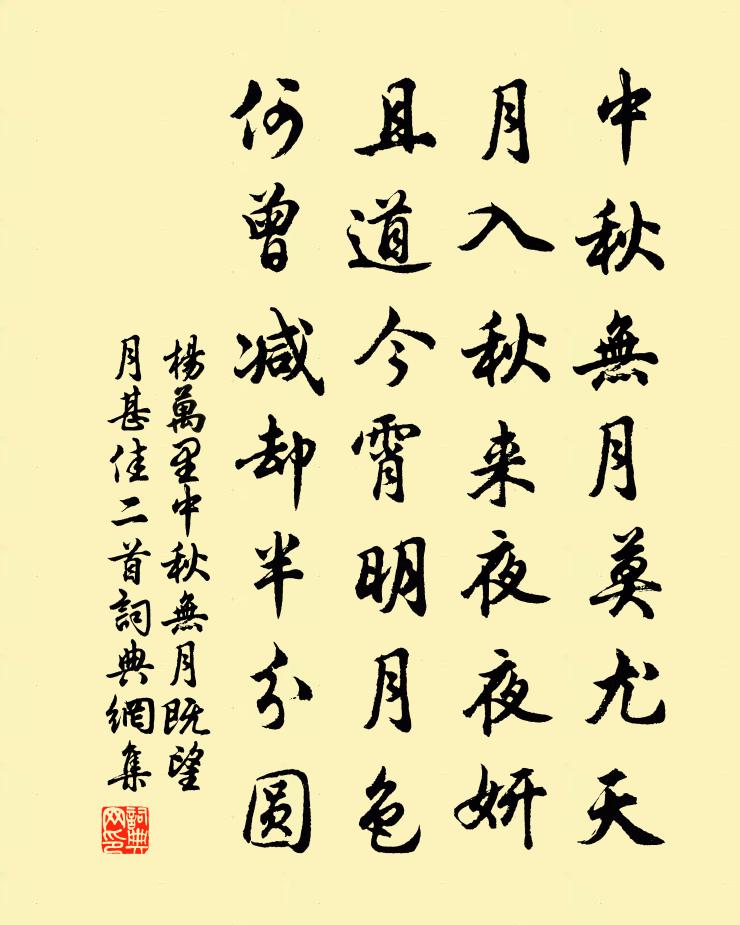 中秋無月莫尤天
月入秋来夜夜妍
且道今宵明月色
何曾减却半分圆
楊萬里中秋無月既望
月甚佳二首詞典網集
詞典网印